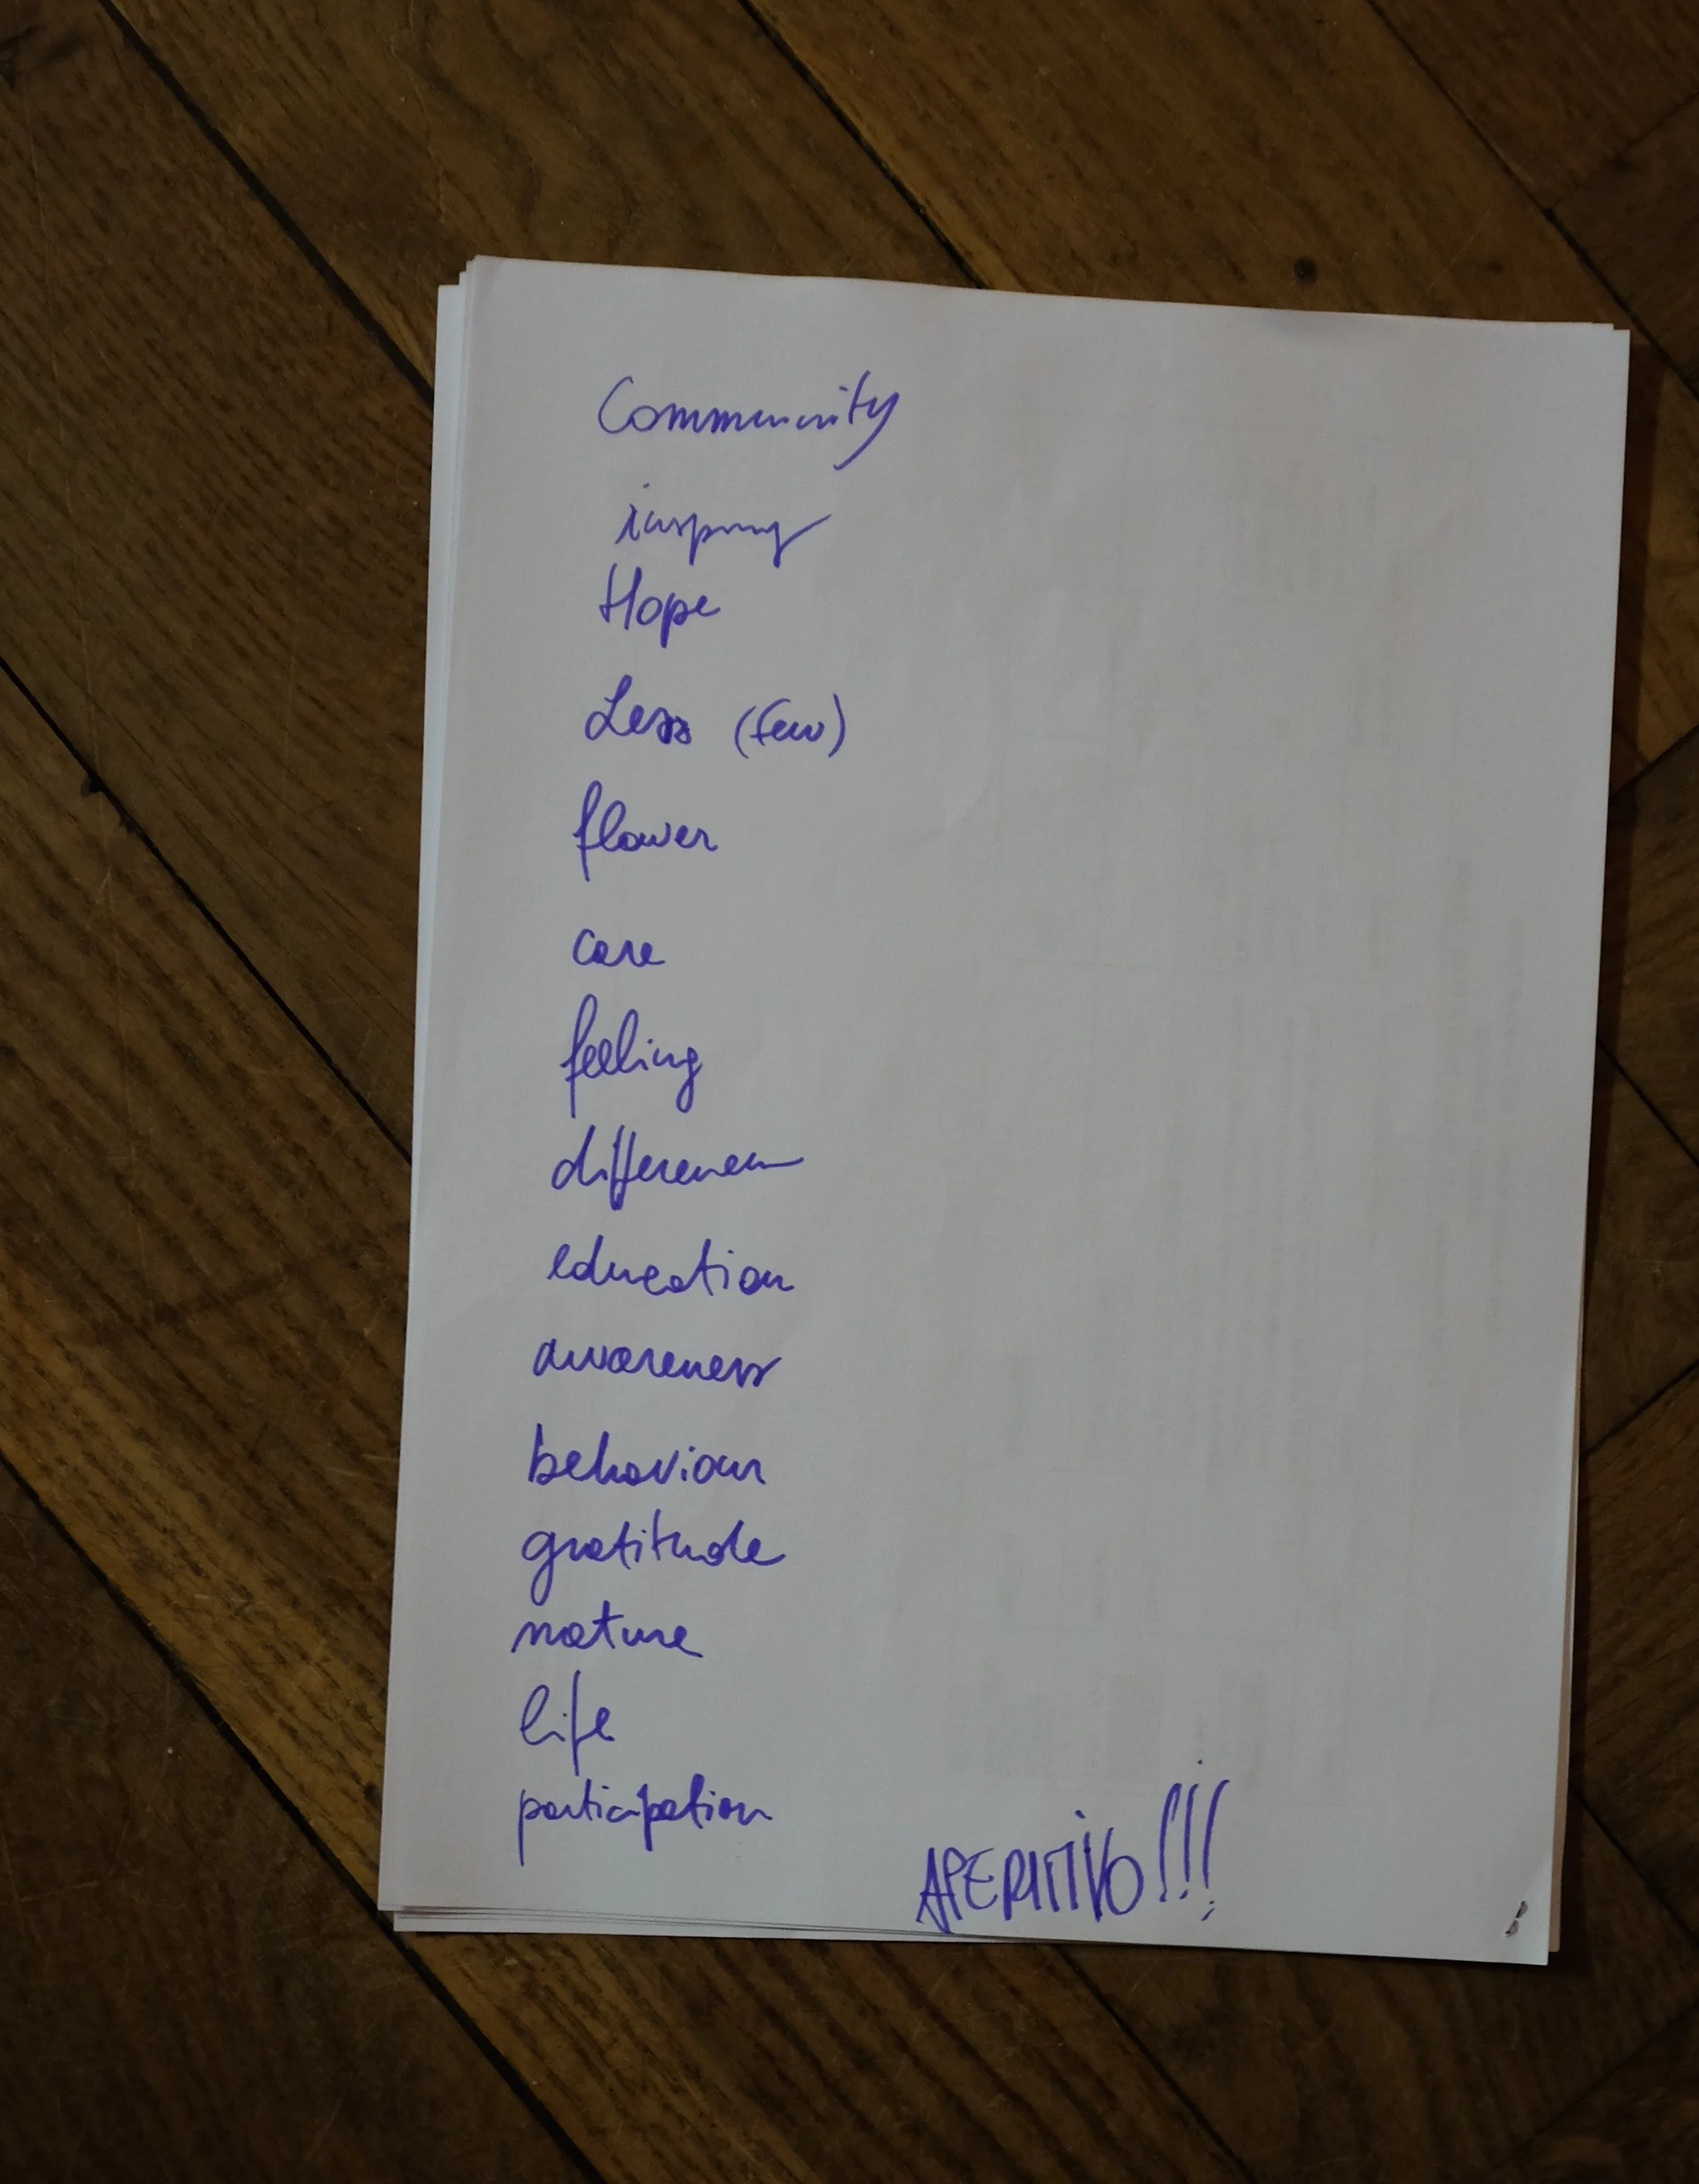 Community
inspiring
Hope
Less (few)
flower
care
feeling
difference
education
awareness
behaviour
gratitude
nature
life
participation
APERITIVO!!!